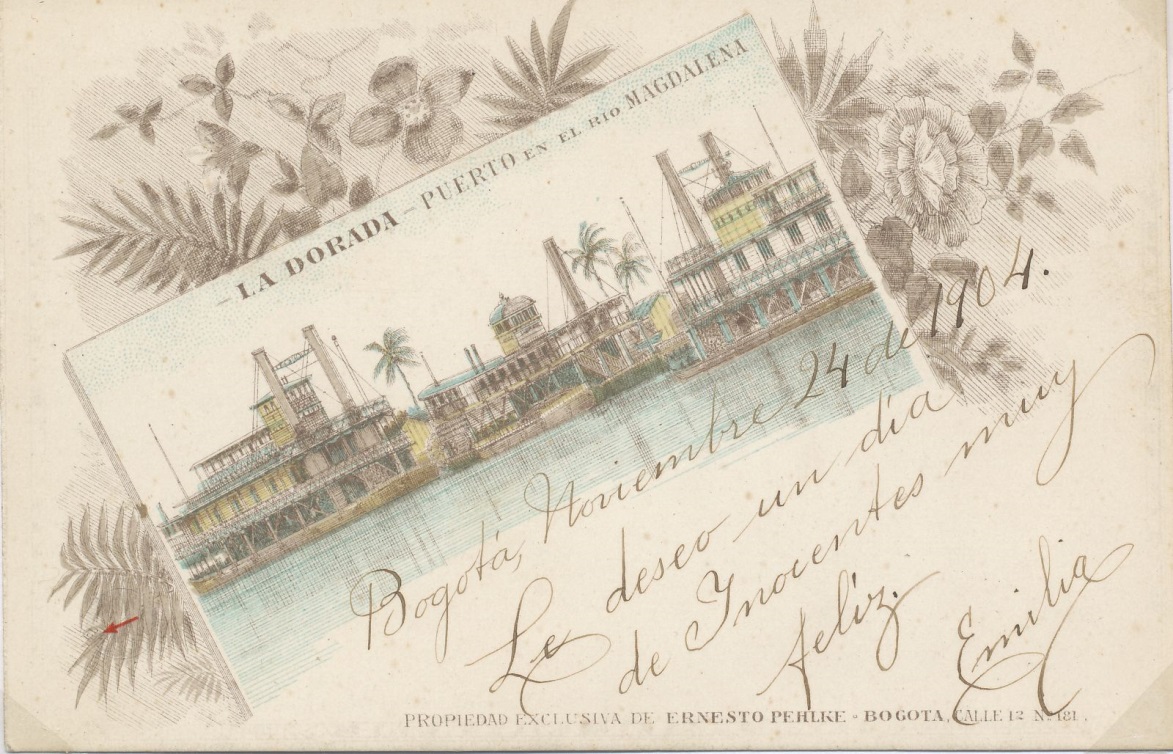 - LA DORADA - PUERTO EN EL RIO MAGDALENA
Bogotá, Noviembre 24 de 1904.
Le deseo un día
de Inocentes muy
feliz.
Emilia
PROPIEDAD EXCLUSIVA DE ERNESTO PEHLKE - BOGOTA, CALLE 12 No 181.